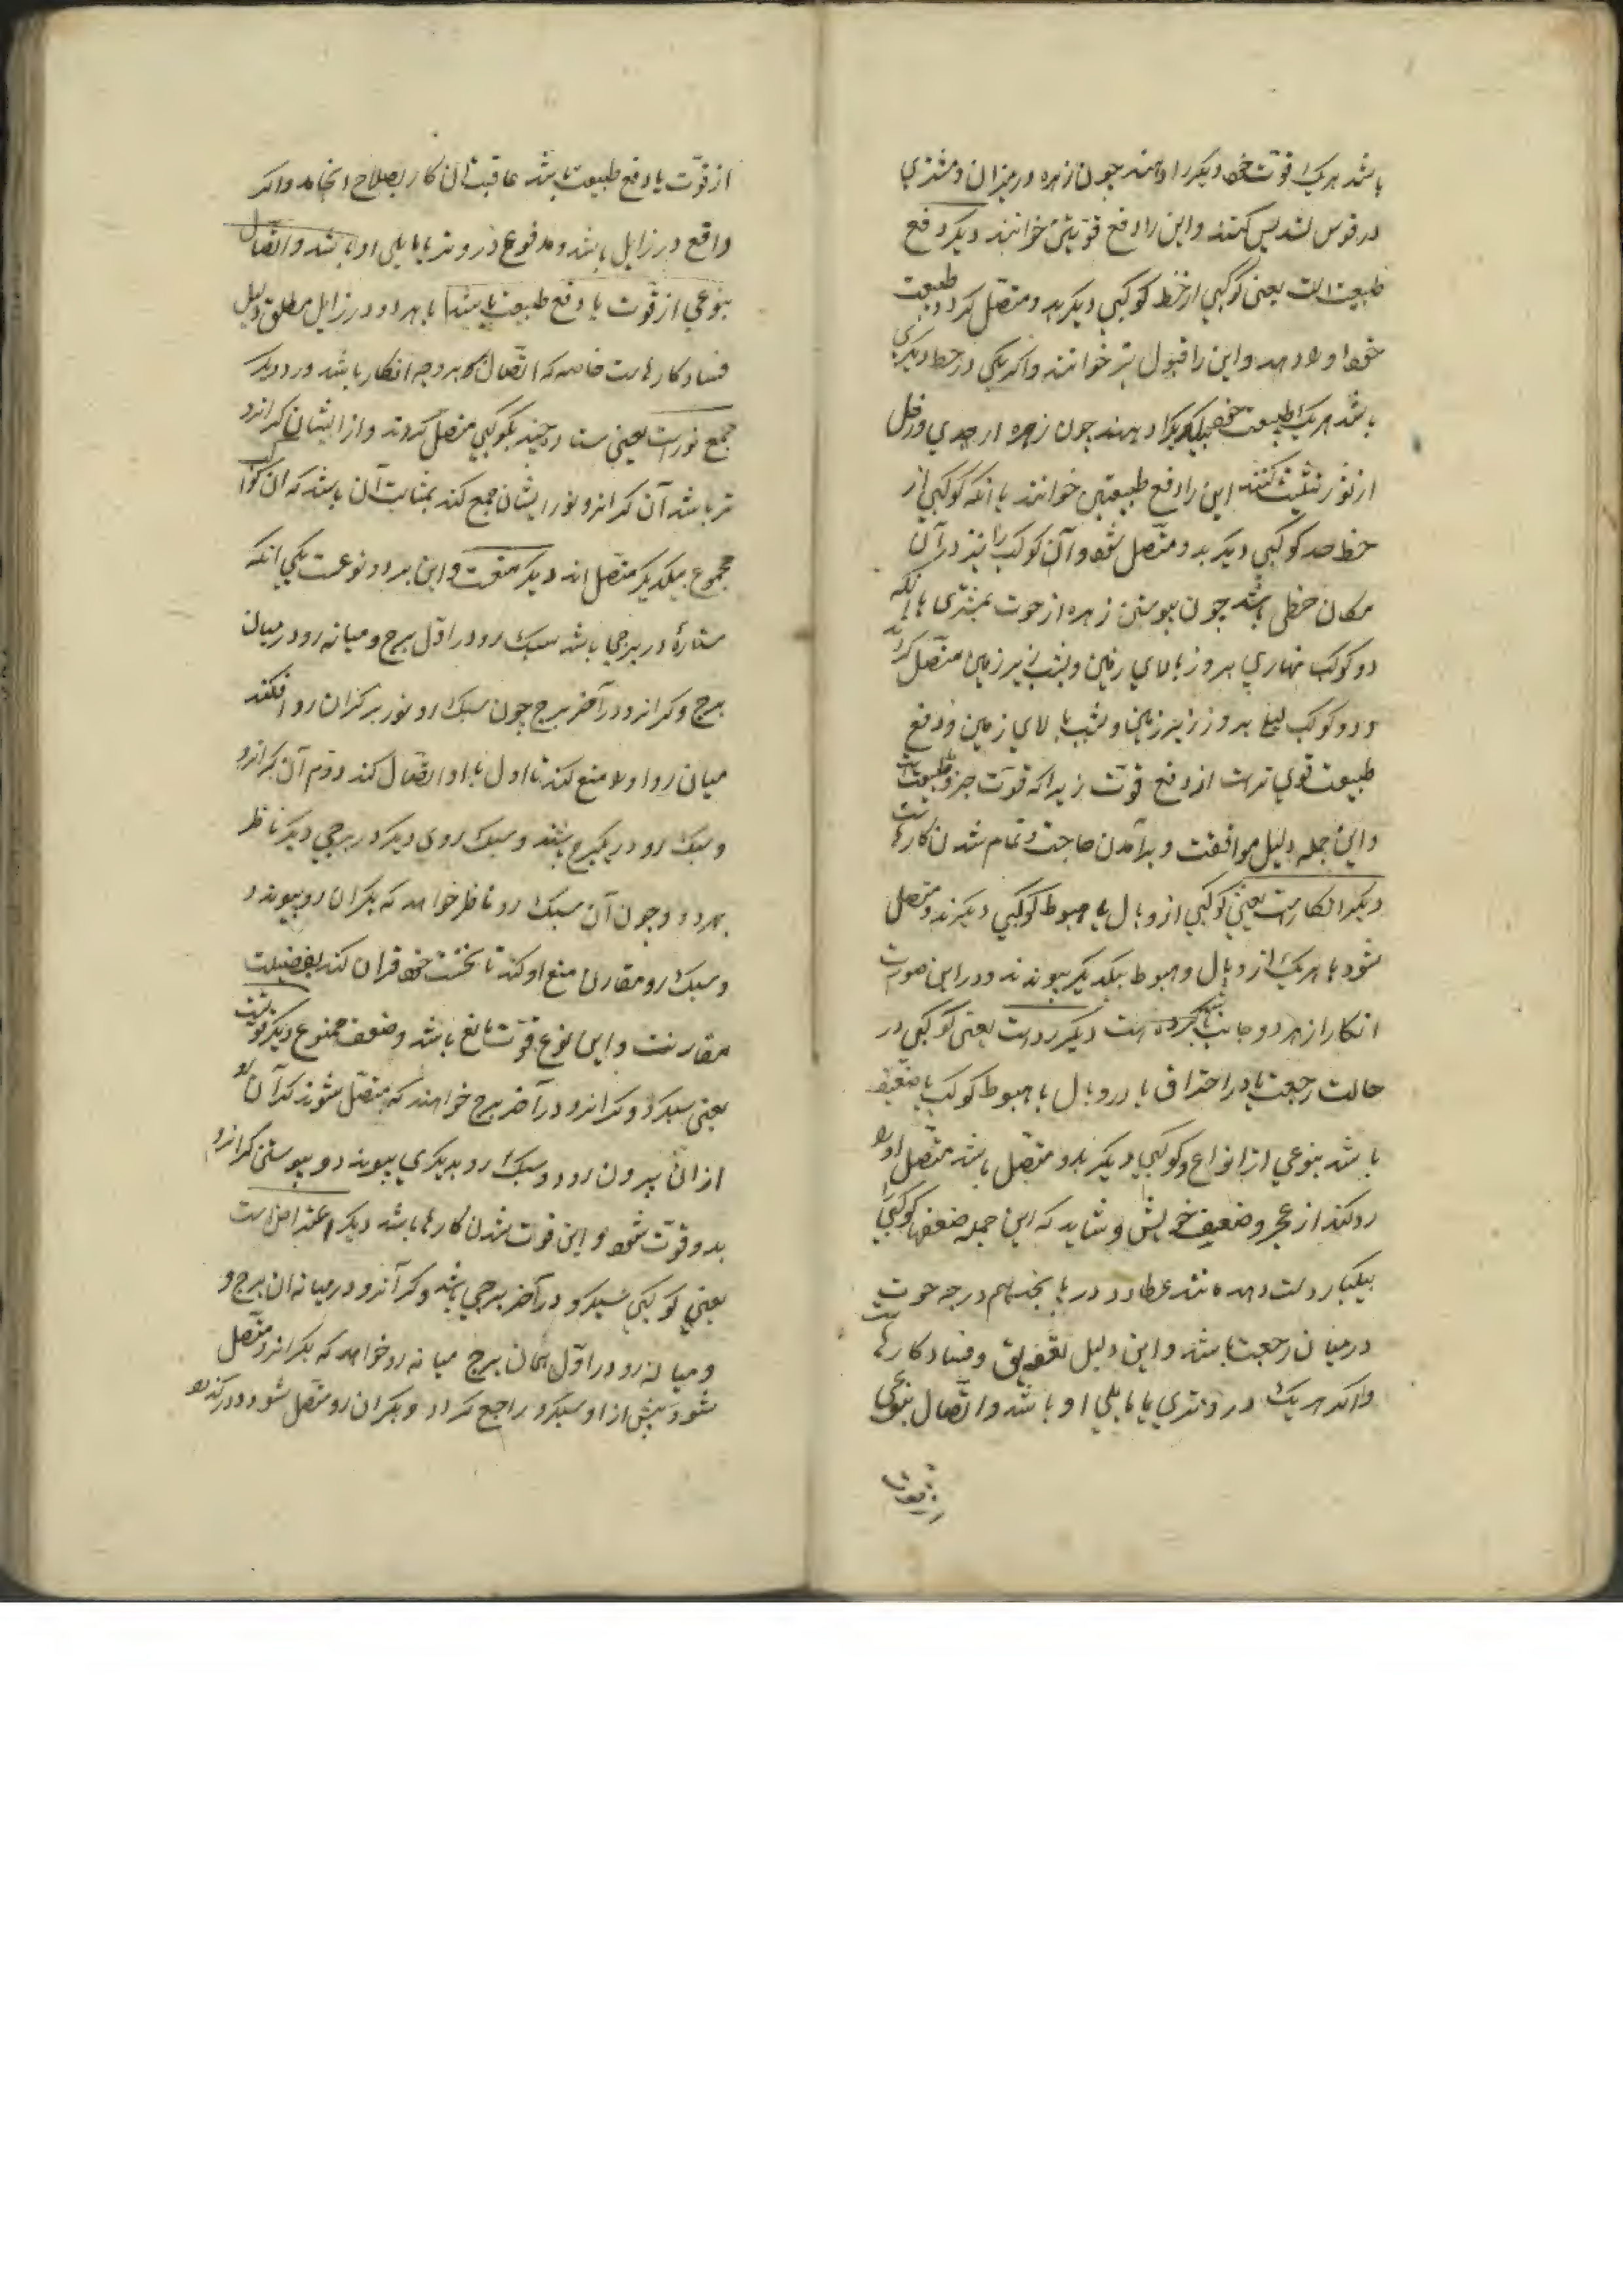 باشد هر یک قوت خود دیگر را دهند چون زهره در میزان و مشتری
در قوس تسدیس کنند و این را دفع قوتین خوانند دیگر دفع
طبیعت است یعنی کوکبی از خط کوکبی دیگر بدو متصل گردد طبیعت
خود او را دهد و این را قبول نیز خوانند و اگر یکی در حظ دیگری
باشد هر یک طبیعت خود بیکدیگر دهند چون زهره از جدی و زحل
از ثور تثلیث کنند این را دفع طبیعتین خوانند یا آنکه کوکبی از
حظ خود کوکبی دیگر بدو متصل شود و آن کوکب را نیز در آن
مکان حظی باشد چون پیوستن زهره از حوت بمشتری یا آنکه
دو کوکب نهاری بروز بالای زمین و بشب زیر زمین متصل گردند
و دو کوکب لیلی بروز زیر زمین و بشب بالای زمین و دفع
طبیعت قوی‌تر است از دفع قوت زیرا که قوت جزو طبیعت است
و این جمله دلیل موافقت و برآمدن حاجت و تمام شدن کارهاست
دیگر انکار است یعنی کوکبی از وبال یا هبوط کوکبی دیگر بدو متصل
شود یا هر یک از وبال و هبوط بیکدیگر پیوندند و در این صورت
انکار از هر دو جانب باشد دیگر رد است یعنی کوکبی در
حالت رجعت یا در احتراق یا در وبال یا هبوط کوکب یا ضعیف
باشد بنوعی از انواع و کوکبی دیگر بدو متصل باشد متصل او را
رد کند از عجز و ضعیفی خویش و شاید که این جمله ضعفها کوکبی را
بیکبار دست دهد مانند عطارد در پانجدهم درجه حوت
در میان رجعت باشد و این دلیل تعویق و فساد کارهاست
و اگر هر یک در وتدی یا مایلی او باشد و اتصال بنوعی
از قوت
از قوت یا دفع طبیعت باشد عاقبت آن کار بصلاح انجامد و اگر
دافع در زایل باشد و مدفوع در وتد یا مایلی او باشد و اتصال
بنوعی از قوت یا دفع طبیعت باشد یا هر دو در زایل مطلق دلیل
فساد کارهاست خاصه که اتصال بر وجه انکار باشد و رد دیگر
جمع نور است یعنی ستاره چند بکوکبی متصل گردند و از ایشان گران‌رو
تر باشد آن گران‌رو نور ایشان جمع کند بمثابت آن باشد که آن کواکب
مجموع بیکدیگر متصل‌اند دیگر منعست و این بر دو نوعست یکی آنکه
ستارهٔ در برجی باشد سبک رو در اول برج و میانه رو در میان
برج و گران‌رو در آخر برج چون سبک رو نور بر گران رو افکند
میان رو او را منع کند تا اول باو اتصال کند دوم آن گران‌رو
و سبک رو در یک برج باشند و سبک روی دیگر در برجی دیگر ناظر
بهر دو و چون آن سبک رو ناظر خواهد که بگران رو پیوندد
و سبک رو مقارن منع او کند تا نخست خود قران کند بفضیلت
مقارنت و این نوع قوت مانع باشد و ضعف ممنوع دیگر فوتست
یعنی سبکرو و گران‌رو در آخر برج خواهند که متصل شوند گران رو
از آن بیرون رود و سبک رو بدیگری پیوندد و پیوستن گران‌رو
بدو فوت شود و این فوت شدن کارها باشد دیگر اعتراض است
یعنی کوکبی سبکرو در آخر برجی باشد و گران‌رو در میانه آن برج و
و میانه رو در اول همان برج میانه رو خواهد که بگران‌رو متصل
شود پیش از او سبکرو راجع گردد و بگران رو متصل شود و درگذرد